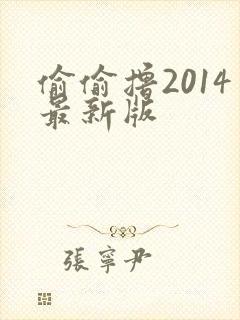 偷偷撸2014
最新版
張寧尹